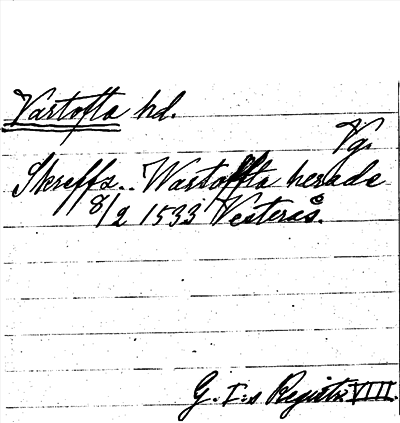 Vartofta hd.
Vg.
Skreffz.. Wastoffta herade
8/2 1533 Vesterås.
G. I:s Registr. VIII.